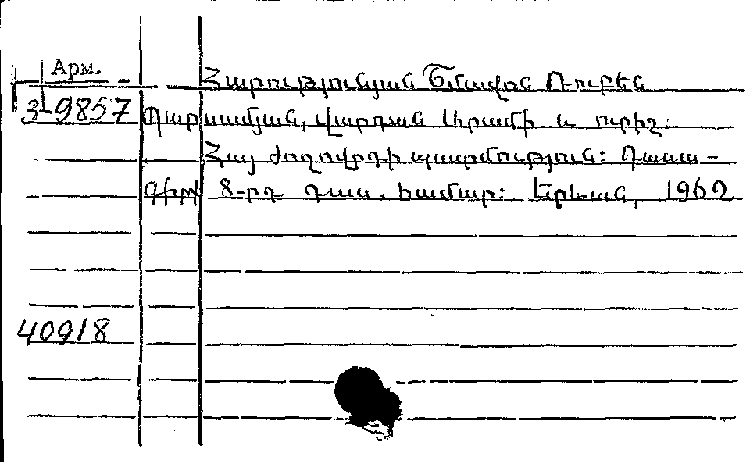 Арм.
Հարությունյան Շմավոն Ռուբեն
3-9857
Պարսամյան, Վարդան Արամի և ուրիշ։
Հայ ժողովրդի պատմություն։ Դասա-
գիրք 8-րդ դաս. համար։ Երևան, 1962
40918